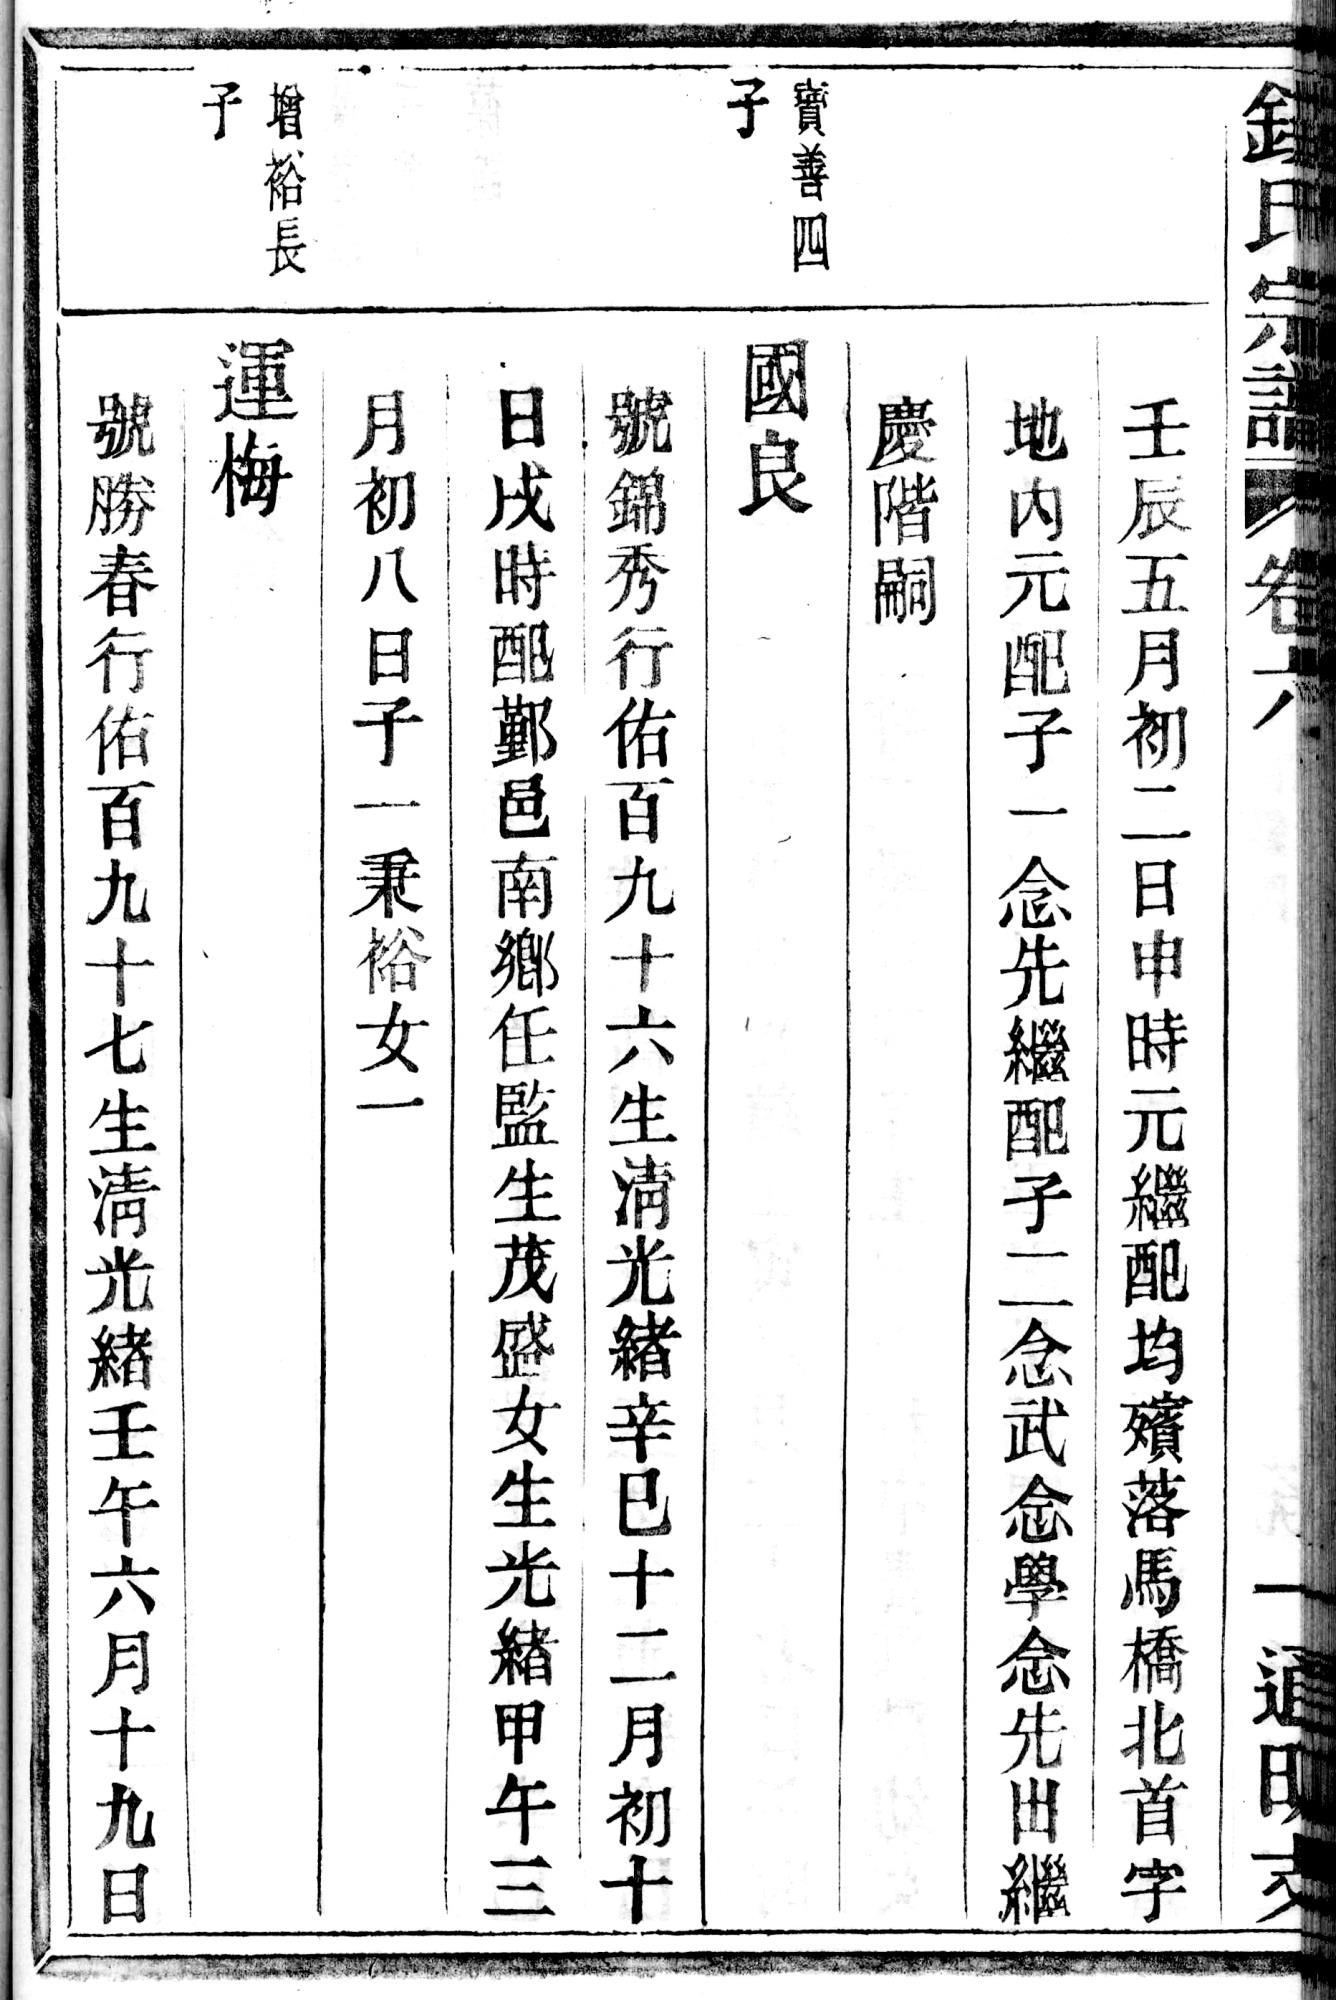 氏宗譜 卷六 一 通明支
壬辰五月初二日申時元繼配均殯落馬橋北首字
地內元配子一念先繼配子二念武念學念先出繼
慶階嗣
寶善四
子
國良
號錦秀行佑百九十六生清光緒辛巳十二月初十
日戌時配鄞邑南鄉任監生茂盛女生光緒甲午三
月初八日子一秉裕女一
增裕長
子
運梅
號勝春行佑百九十七生清光緒壬午六月十九日